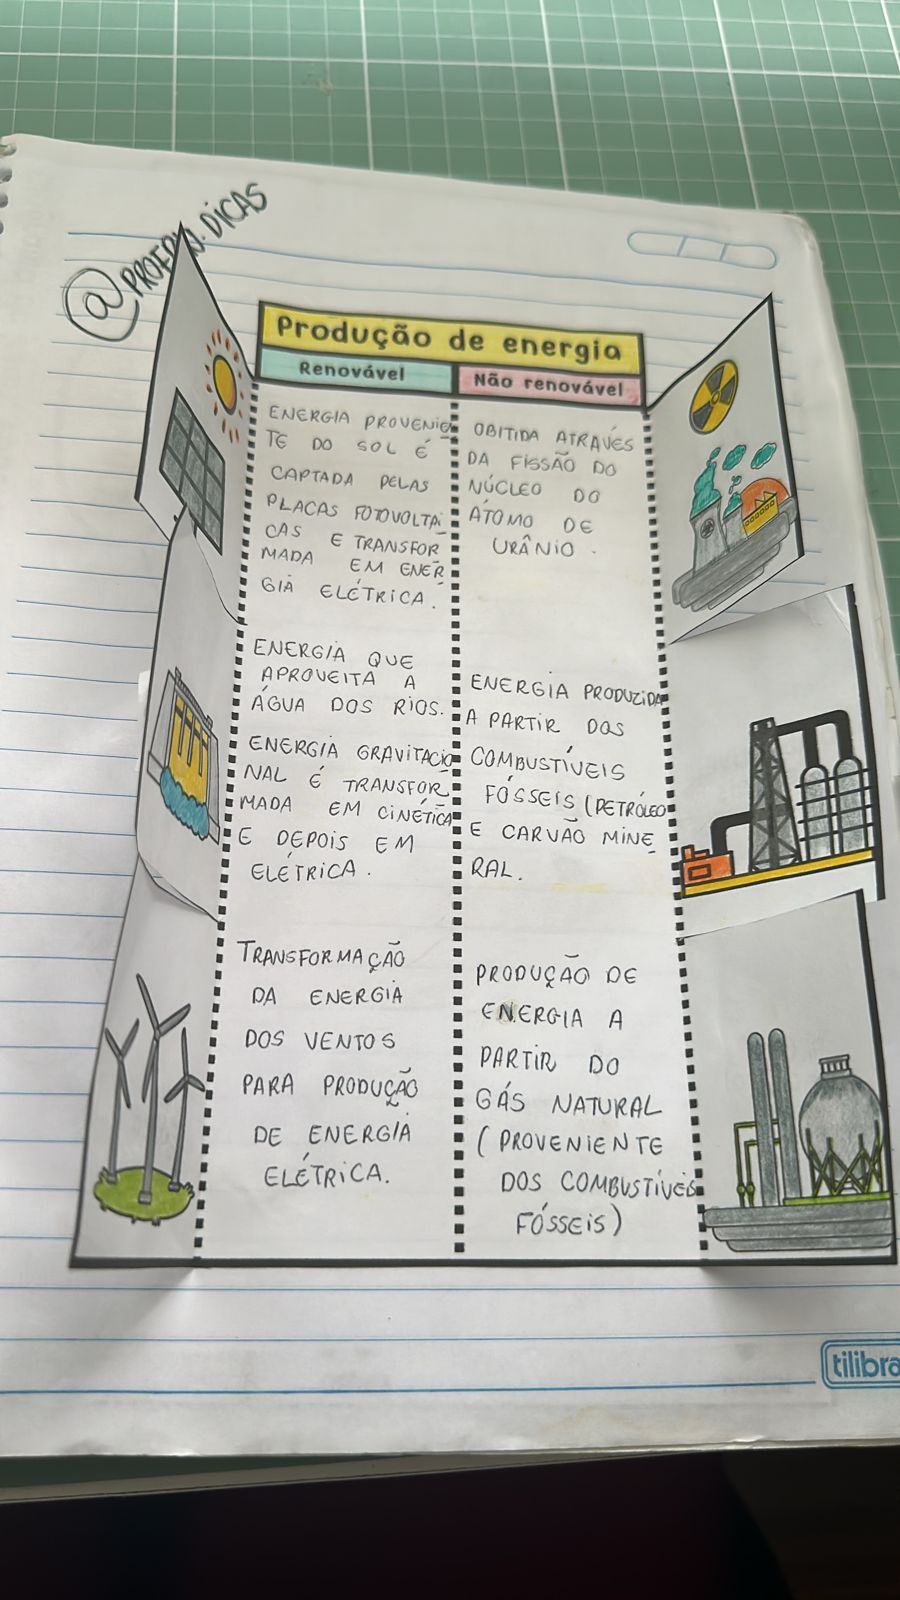 @PROFBIO.DICAS
Produção de energia
Renovável
Não renovável
ENERGIA PROVENIE
TE DO SOL É
CAPTADA PELAS
PLACAS FOTOVOLTAI
CAS E TRANSFOR
MADA EM ENER
GIA ELÉTRICA.
OBITIDA ATRAVÉS
DA FISSÃO DO
NÚCLEO DO
ÁTOMO DE
URÂNIO.
ENERGIA QUE
APROVEITA A
ÁGUA DOS RIOS.
ENERGIA GRAVITACIO
NAL É TRANSFOR
MADA EM CINÉTICA
E DEPOIS EM
ELÉTRICA.
ENERGIA PRODUZIDA
A PARTIR DOS
COMBUSTÍVEIS
FÓSSEIS (PETRÓLEO
E CARVÃO MINE
RAL.
TRANSFORMAÇÃO
DA ENERGIA
DOS VENTOS
PARA PRODUÇÃO
DE ENERGIA
ELÉTRICA.
PRODUÇÃO DE
ENERGIA A
PARTIR DO
GÁS NATURAL
(PROVENIENTE
DOS COMBUSTÍVEIS
FÓSSEIS)
tilibra